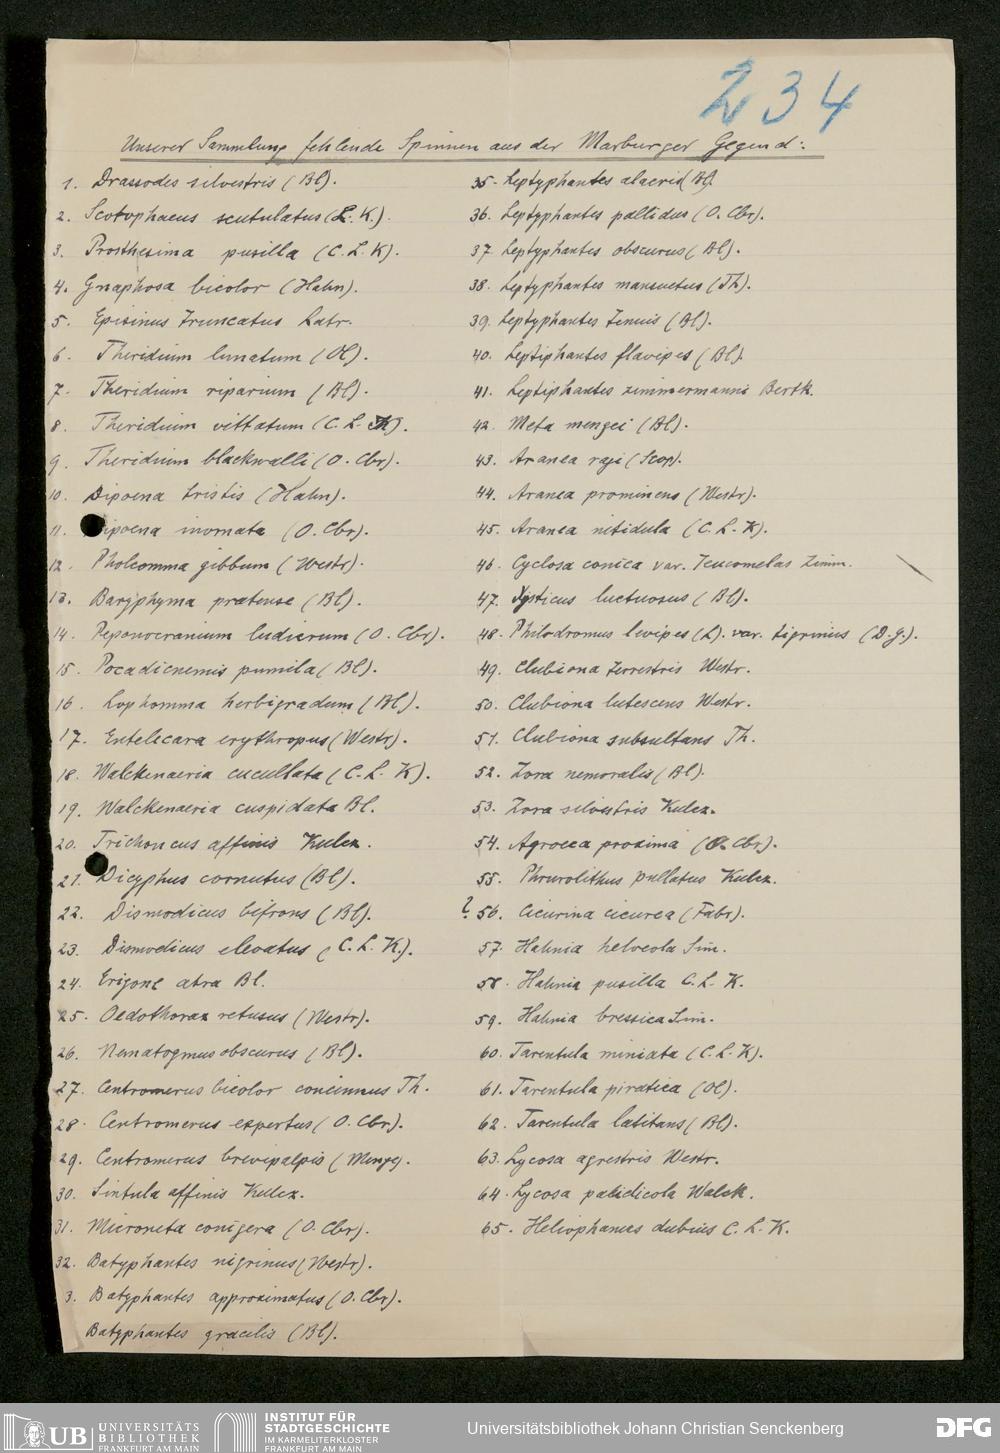 234
Unserer Sammlung fehlende Spinnen aus der Marburger Gegend:
1. Drassodes silvestris (Bl).
2. Scotophaeus scutulatus (L. K.).
3. Prosthesima pusilla (C. L. K).
4. Gnaphosa bicolor (Hahn).
5. Episinus truncatus Latr.
6. Theridium lunatum (Ol).
7. Theridium riparium (Bl).
8. Theridium vittatum (C. L. K).
9. Theridium blackwalli (O. Cbr).
10. Dipoena tristis (Hahn).
11. ipoena inornata (O. Cbr).
12. Pholcomma gibbum (Westr).
13. Baryphyma pratense (Bl).
14. Peponocranium ludicrum (O. Cbr).
15. Pocadicnemis pumila (Bl).
16. Lophomma herbigradum (Bl).
17. Entelecara erythropus (Westr).
18. Walckenaeria cucullata (C. L. K).
19. Walckenaeria cuspidata Bl.
20. Trichoncus affinis Kulcz.
21. Dicyphus cornutus (Bl).
22. Dismodicus bifrons (Bl).
23. Dismodicus elevatus (C. L. K.).
24. Erigone atra Bl.
25. Oedothorax retusus (Westr).
26. Nematogmus obscurus (Bl).
27. Centromerus bicolor concinnus Th.
28. Centromerus expertus (O. Cbr).
29. Centromerus brevipalpis (Menge).
30. Sintula affinis Kulcz.
31. Microneta conigera (O. Cbr).
32. Batyphantes nigrinus (Westr).
3. Batyphantes approximatus (O. Cbr).
Batyphantes gracilis (Bl).
35. Leptyphantes alacris (Bl).
36. Leptyphantes pallidus (O. Cbr).
37. Leptyphantes obscurus (Bl).
38. Leptyphantes mansuetus (Th).
39. Leptyphantes tenuis (Bl).
40. Leptiphantes flavipes (Bl).
41. Leptiphantes zimmermanni Bertk.
42. Meta mengei (Bl).
43. Aranea raji (Scop).
44. Aranea prominens (Westr).
45. Aranea nitidula (C. L. K).
46. Cyclosa conica var. leucomelas Zimm.
47. Xysticus luctuosus (Bl).
48. Philodromus levipes (L). var. tigrinus (D. g.).
49. Clubiona terrestris Westr.
50. Clubiona lutescens Westr.
51. Clubiona subsultans Th.
52. Zora nemoralis (Bl).
53. Zora silvestris Kulcz.
54. Agroeca proxima (O. Cbr).
55. Phrurolithus pullatus Kulcz.
? 56. Cicurina cicurea (Fabr).
57. Hahnia helveola Sim.
58. Hahnia pusilla C. L. K.
59. Hahnia bressica Sim.
60. Tarentula miniata (C. L. K).
61. Tarentula piratica (Ol).
62. Tarentula latitans (Bl).
63. Lycosa agrestris Westr.
64. Lycosa palidicola Walck.
65. Heliophanus dubius C. L. K.
UB UNIVERSITÄTS
BIBLIOTHEK
FRANKFURT AM MAIN
INSTITUT FÜR
STADTGESCHICHTE
IM KARMELITERKLOSTER
FRANKFURT AM MAIN
Universitätsbibliothek Johann Christian Senckenberg
DFG